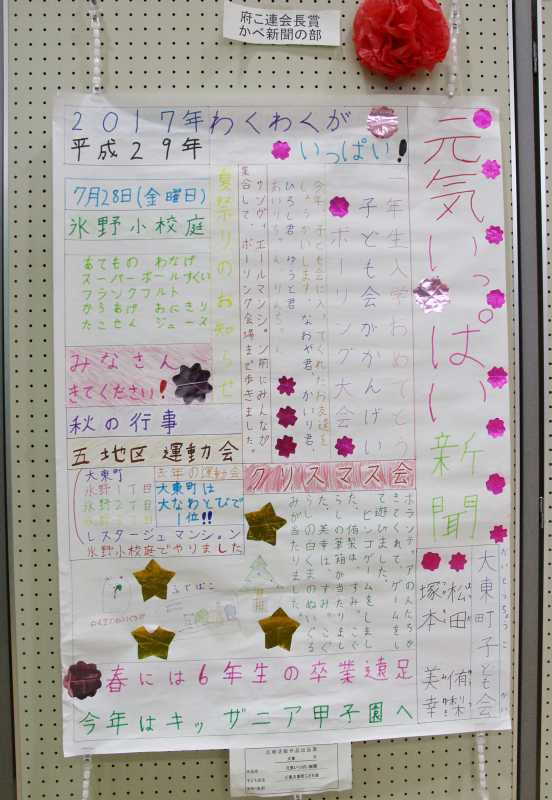 府こ連会長賞
かべ新聞の部
元気いっぱい新聞
大東町子ども会
松田 侑梨
塚本 美幸
2017年わくわくが
平成29年
いっぱい!
一年生入学おめでとう
子ども会がかんげい
ボーリング大会
今年、子ども会に入ってくれたお友達を
しょうかいします。なおや君、かいり君、
ひろし君、ゆうと君
サンヴィエールマンション前にみんなが
集合して、ボーリング会場まで歩きました。
夏祭りのお知らせ
7月28日(金曜日)
氷野小校庭
あてもの わなげ
スーパーボールすくい
フランクフルト
からあげ おにぎり
たこせん ジュース
みなさん
きてください!
秋の行事
五地区 運動会
大東町
氷野1丁目
氷野2丁目
去年の運動会
大東町は
大なわとびで
1位!!
レスタージュマンション
氷野小校庭でやりました
クリスマス会
ボランティアの人たちが
きてくれて、ゲームをし
て遊びました。
ビンゴゲームをしまし
た。侑梨は、すみっこぐ
らしの筆箱が当たりまし
た。美幸は、すみっこぐ
らしの白くまのぬいぐる
みが当たりました。
ふでばこ
春には6年生の卒業遠足
今年はキッザニア甲子園へ